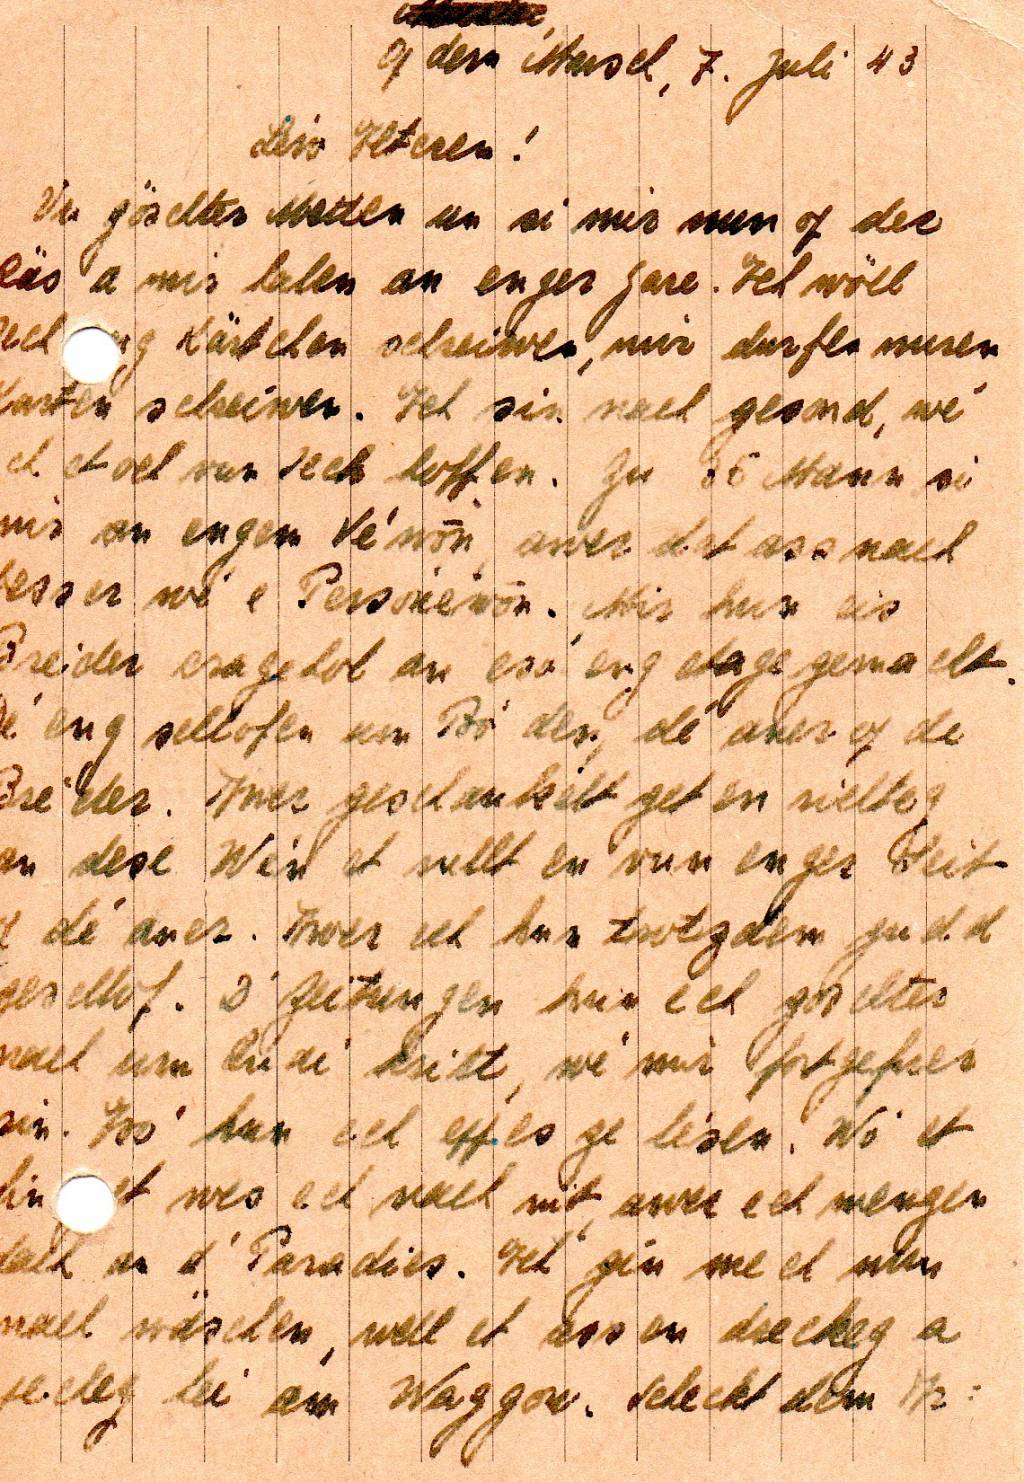 of dem Musel, 7. Juli 43
Leiw Elteren!
Vu göschter Metten un si mir nun of der
Räs a mir halen an enger Gare. Ech wöll
iech eng Kärtchen schreiwen, mir durfen nuren
Karten schreiwen. Ech sin nach gesond, wé
ech et och vun iech hoffen. Zu 36 Mann si
mir an engem Véwön, awer dat ass nach
besser wé e Personewön. Mir hun eis
Breider eragehol an esó eng etage gemacht.
Dé eng schlofen um Bó den, dé aner of de
Breider. Awer geschaukelt get en richteg
an dese Wén et rullt en vun enger Seit
of dé aner. Awer ech hun trotzdem gudd
geschlof. D'Zeitungen hun ech göschter
nach um kritt, wé mir fortgefuer
sin. Esó hun ech eppes ze liesen. Wó et
hin get wes ech nach nit, awer ech mengen
bal an d'Paradies. Ech gin mech nun
nach wäschen, well et ass en dreckeg a
hei am Waggon. Scheckt dem